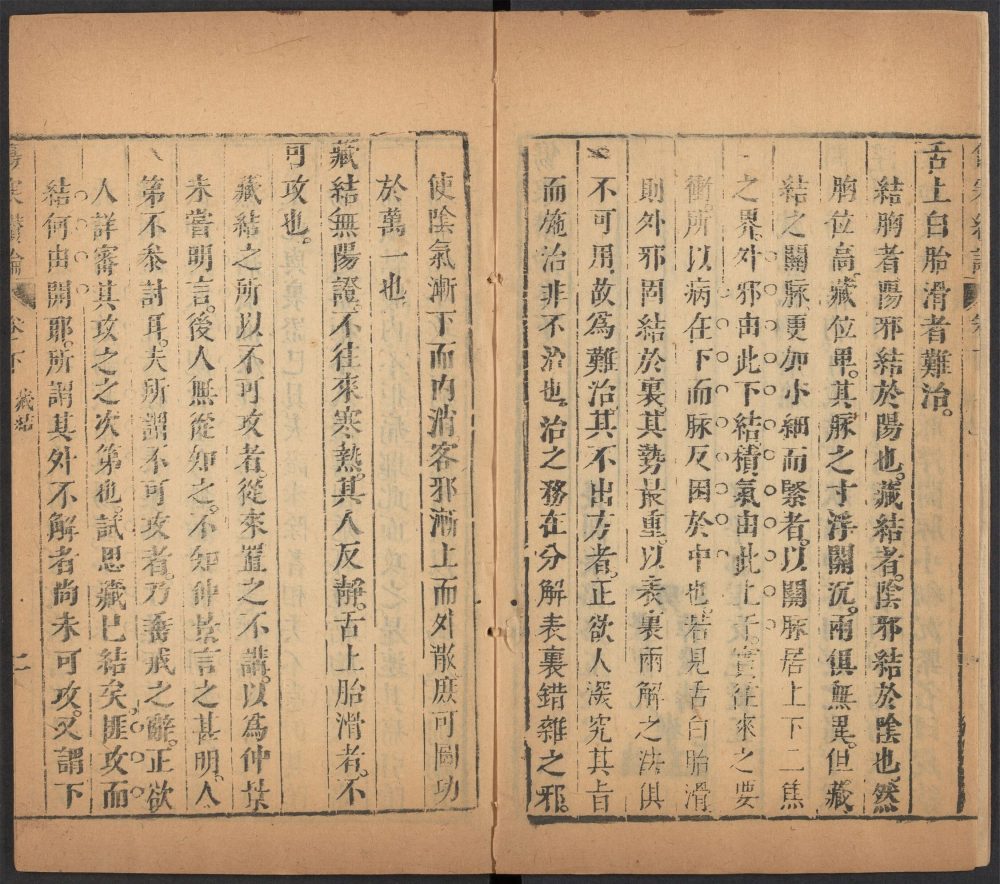 舌上白胎滑者難治。
結胸者陽邪結於陽也。藏結者。陰邪結於陰也。然
胸位高。藏位卑。其脉之寸浮關沉。兩俱無異。但藏
結之關脉更加小細而緊者。以關脉居上下二焦
之界。外邪由此下結。積氣由此上干。實往來之要
衝。所以病在下而脉反困於中也。若見舌白胎滑
則外邪固結於裏。其勢最重。以表裏兩解之法俱
不可用。故爲難治。其不出方者。正欲人深究其旨
而施治。非不治也。治之務在分解表裏錯雜之邪。
使陰氣漸下而内消。客邪漸上而外散。庶可圖功
於萬一也
藏結無陽證。不往來寒熱。其人反靜。舌上胎滑者。不
可攻也。
藏結之所以不可攻者。從來置之不講。以爲仲景
未嘗明言。後人無從知之。不知仲景言之甚明。人
第不叅討耳。夫所謂不可攻者。乃垂戒之辭。正欲
人詳審其攻之之次第也。試思藏已結矣。匪攻而
結何由開耶。所謂其外不解者尚未可攻。又謂下
卷下 藏結 二